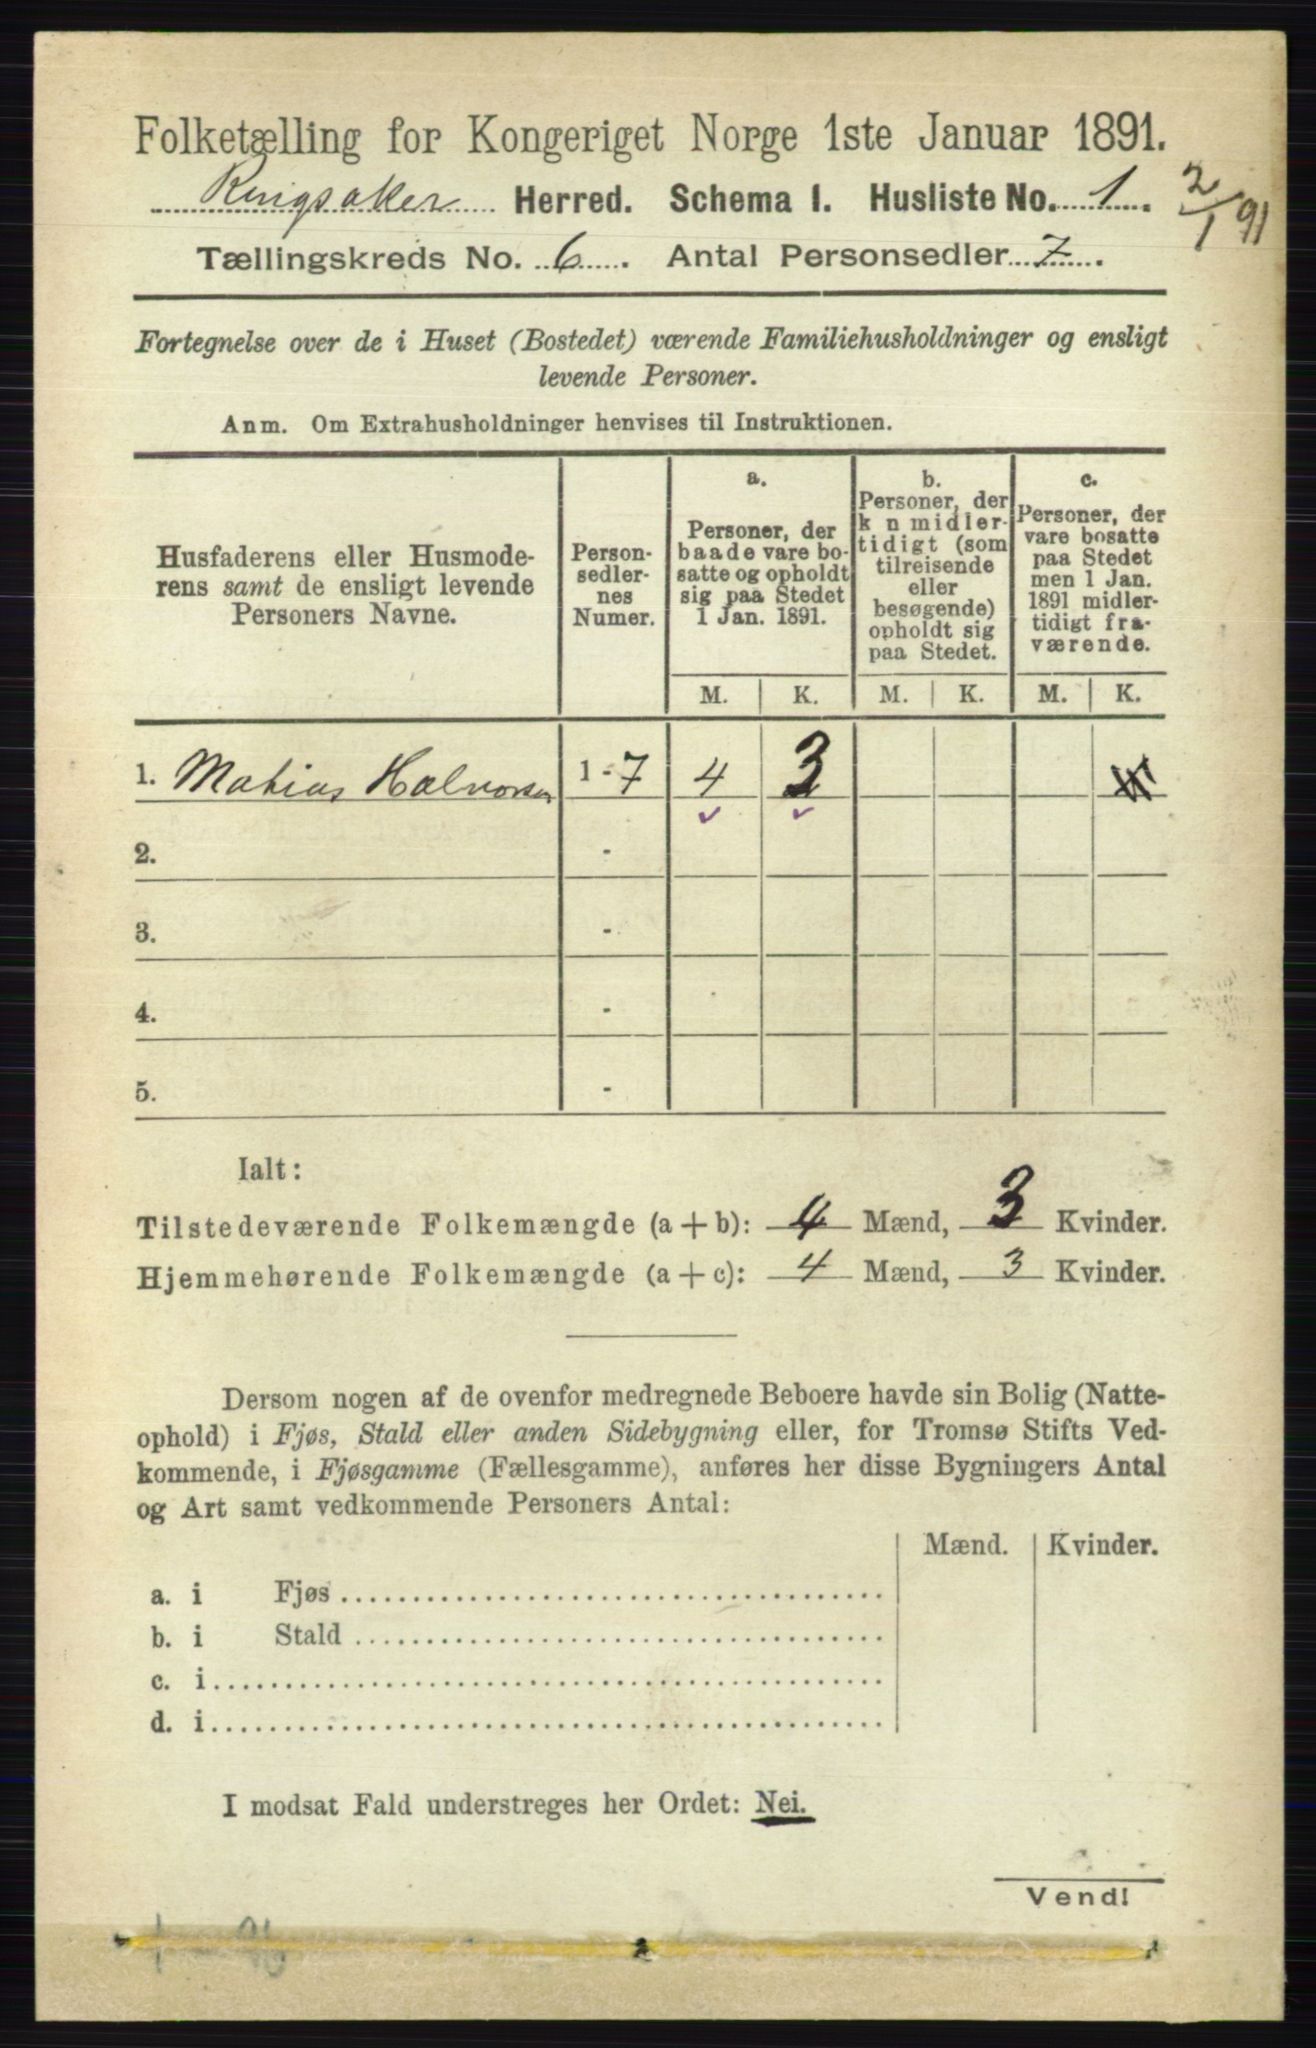 Folketælling for Kongeriget Norge 1ste Januar 1891.
Ringsaker Herred. Schema I. Husliste No. 1. 2/1 91
Tællingskreds No. 6. Antal Personsedler 7.
Fortegnelse over de i Huset (Bostedet) værende Familiehusholdninger og ensligt
levende Personer.
Anm. Om Extrahusholdninger henvises til Instruktionen.
Husfaderens eller Husmode-
rens samt de ensligt levende
Personers Navne.
Person-
sedler-
nes
Numer.
a.
Personer, der
baade vare bo-
satte og opholdt
sig paa Stedet
1 Jan. 1891.
b.
Personer, der
k n midler-
tidigt (som
tilreisende
eller
besøgende)
opholdt sig
paa Stedet.
c.
Personer, der
vare bosatte
paa Stedet
men 1 Jan.
1891 midler-
tidigt fra-
værende.
M. K. M. K. M. K.
1. Matias Halvorsen 1 - 7 4 3
2. -
3. -
4. -
5. -
Ialt:
Tilstedeværende Folkemængde (a + b): 4 Mænd, 3 Kvinder.
Hjemmehørende Folkemængde (a + c): 4 Mænd, 3 Kvinder.
Dersom nogen af de ovenfor medregnede Beboere havde sin Bolig (Natte-
ophold) i Fjøs, Stald eller anden Sidebygning eller, for Tromsø Stifts Ved-
kommende, i Fjøsgamme (Fællesgamme), anføres her disse Bygningers Antal
og Art samt vedkommende Personers Antal:
Mænd. Kvinder.
a. i Fjøs
b. i Stald
c. i
d. i
I modsat Fald understreges her Ordet: Nei.
Vend!